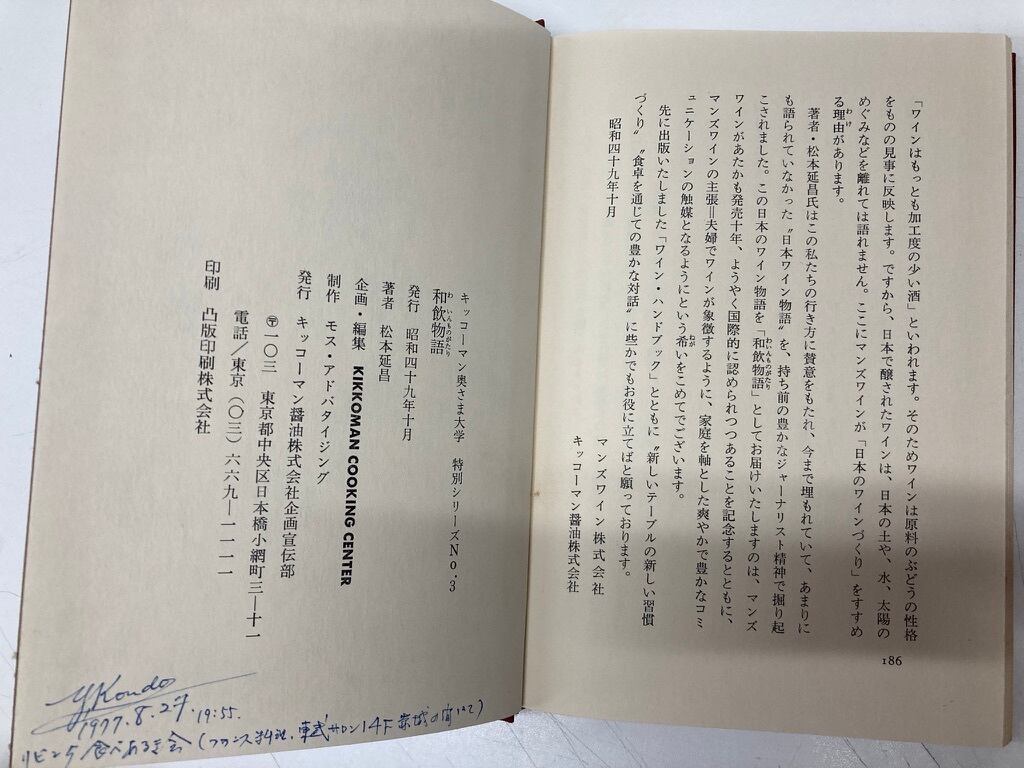 「ワインはもっとも加工度の少い酒」といわれます。そのためワインは原料のぶどうの性格
をものの見事に反映します。ですから、日本で醸されたワインは、日本の土や、水、太陽の
めぐみなどを離れては語れません。ここにマンズワインが「日本のワインづくり」をすすめ
る理由があります。
著者・松本延昌氏はこの私たちの行き方に賛意をもたれ、今まで埋もれていて、あまりに
も語られていなかった〝日本ワイン物語〟を、持ち前の豊かなジャーナリスト精神で掘り起
こされました。この日本のワイン物語を「和飲物語」としてお届けいたしますのは、マンズ
ワインがあたかも発売十年、ようやく国際的に認められつつあることを記念するとともに、
マンズワインの主張＝夫婦でワインが象徴するように、家庭を軸とした爽やかで豊かなコミ
ュニケーションの触媒となるようにという希いをこめてでございます。
先に出版いたしました「ワイン・ハンドブック」とともに〝新しいテーブルの新しい習慣
づくり〟〝食卓を通じての豊かな対話〟に些かでもお役に立てばと願っております。
昭和四十九年十月
マンズワイン株式会社
キッコーマン醤油株式会社
186
キッコーマン奥さま大学 特別シリーズNo.3
和飲物語
わいんものがたり
発行 昭和四十九年十月
著者 松本延昌
企画・編集 KIKKOMAN COOKING CENTER
制作 モス・アドバタイジング
発行 キッコーマン醤油株式会社企画宣伝部
〒一〇三 東京都中央区日本橋小網町三―十一
電話／東京（〇三）六六九―一一一一
印刷 凸版印刷株式会社
Y Kondo
1977.8.27. 19:55.
リビング食べあるき会（フランス料理、東武サロン14F